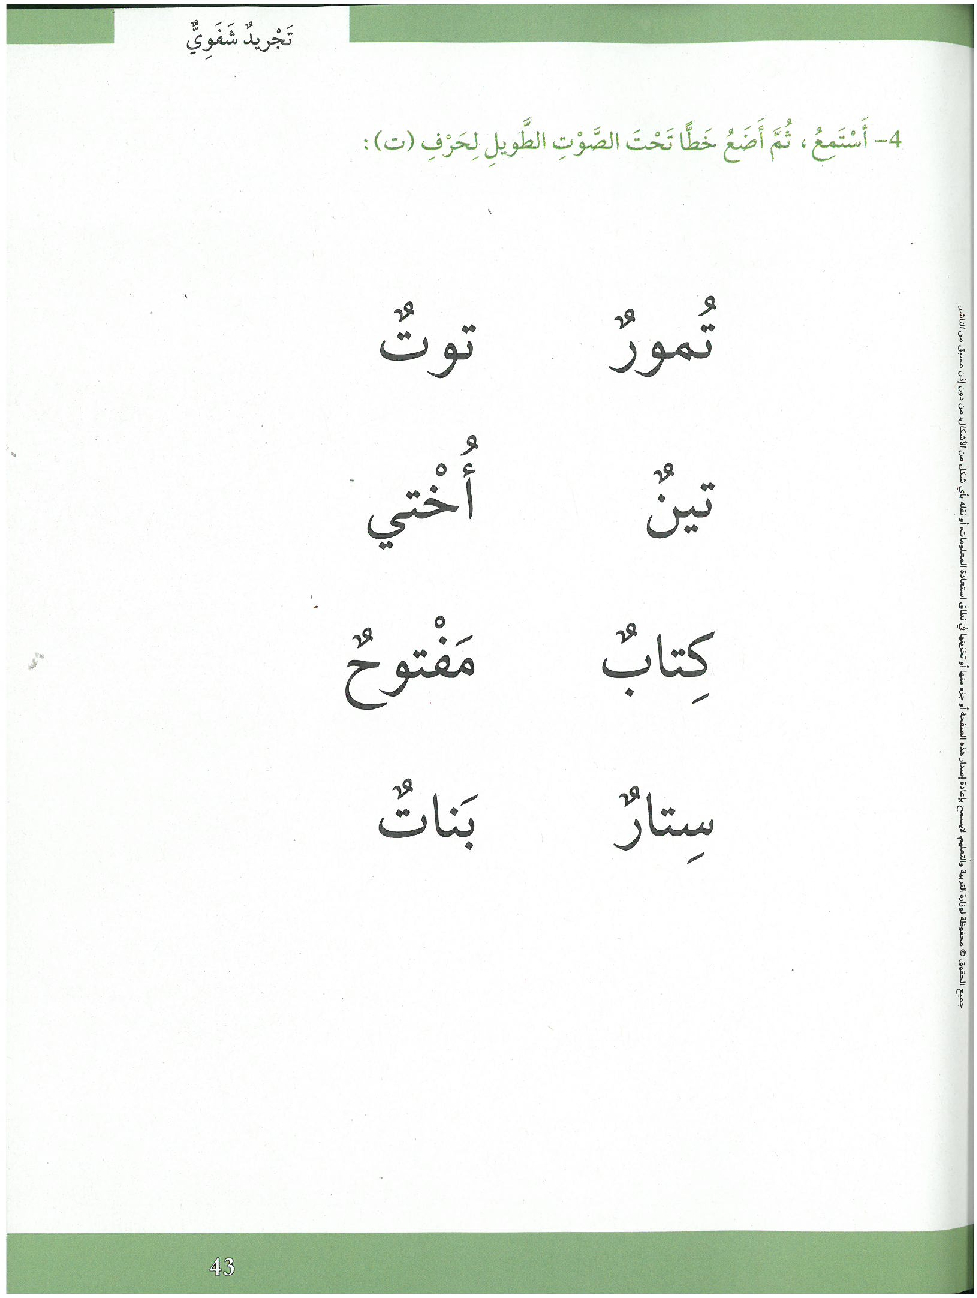 تَجْريدٌ شَفَوِيٌّ
4- أَسْتَمِعُ، ثُمَّ أَضَعُ خَطًّا تَحْتَ الصَّوْتِ الطَّويلِ لِحَرْفِ (ت):
تُمورٌ توتٌ
تينٌ أُخْتي
كِتابٌ مَفْتوحٌ
سِتارٌ بَناتٌ
جميع الحقوق © محفوظة لوزارة التربية والتعليم. لايسمح بإعادة إصدار هذه الصفحة أو جزء منها أو تخزينها في نطاق استعادة المعلومات، أو نقله بأي شكل من الأشكال، من دون إذن مسبق من الناشر
43